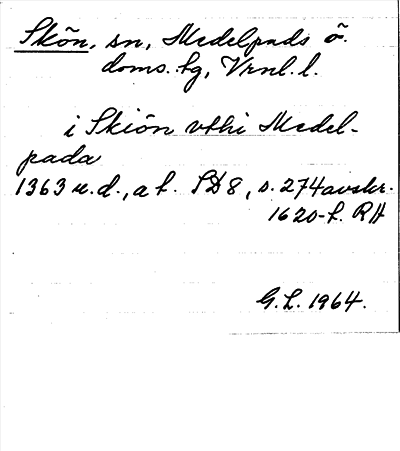 Skön, sn, Medelpads ö.
doms. tg, Vrnl. l.
i Skiön vthi Medel-
pada
1363 u.d., a f. SD 8, s. 274 avskr.
1620-t. RA
G.L. 1964.